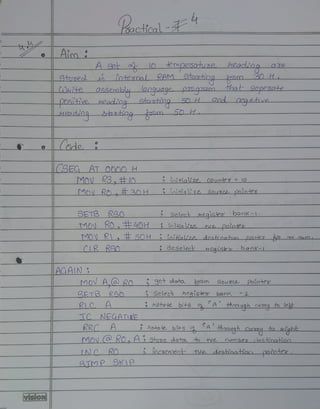 Practical - 4
Aim :
A set of 10 temperature reading are
stored in internal RAM starting from 30 H.
Write assembly language program that seperate
positive reading starting 40 H and negetive
reading starting from 50 H.
Code :
CSEG AT 0000 H
MOV R3, #10 : initialize counter = 10
MOV R0, #30H : initialize source pointer
SETB RS0 : Select register bank-1
MOV R0, #40H : initialize +ve pointer
MOV R1, #50H : initialize destination pointer for
CLR RS0 : deselect register bank-1
AGAIN :
MOV A,@ R0 : get data from source pointer
SETB RS0 : Select register bank -1
RLC A : rotate bits of "A" through carry to left
JC NEGATIVE
RRC A : rotate bits of "A" through carry to right
MOV @ R0, A : Store data to +ve number destination
INC R0 : increment +ve destination pointer.
SJMP SKIP
vision